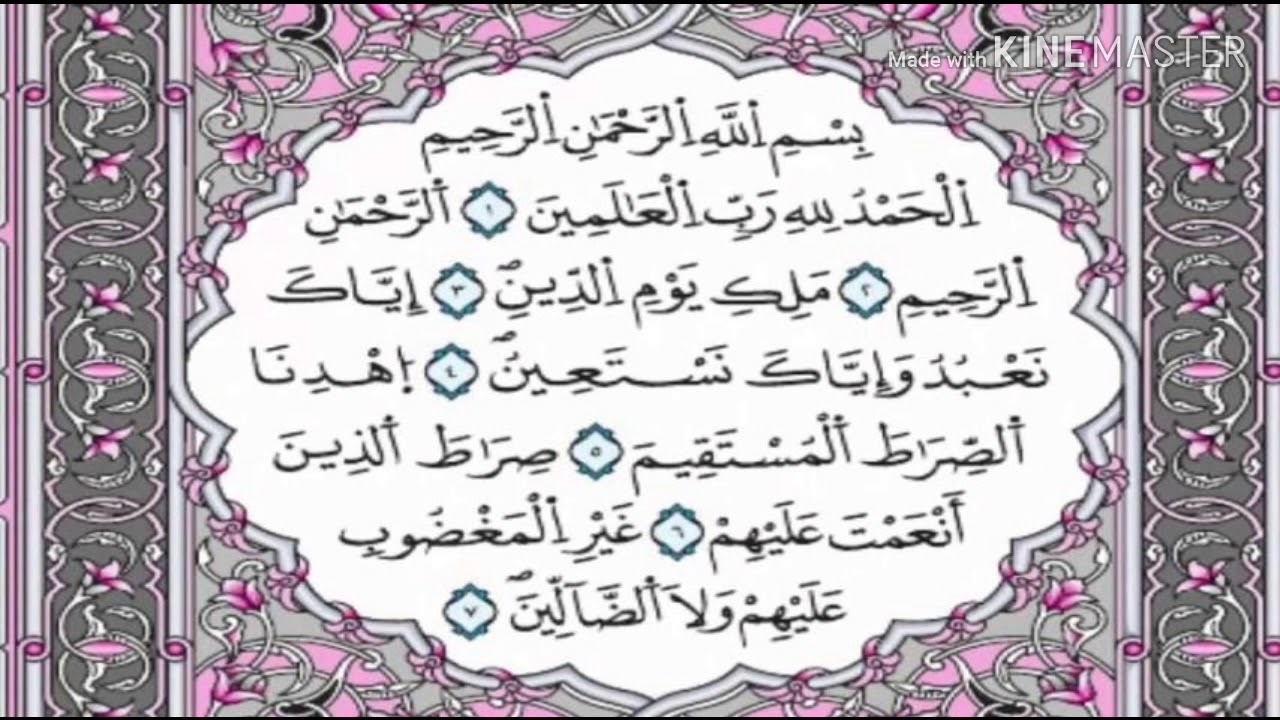 Made with KINEMASTER
بِسْمِ اِ۬للَّهِ اِ۬لرَّحْمَٰنِ اِ۬لرَّحِيمِ
اِ۬لْحَمْدُ لِلهِ رَبِّ اِ۬لْعَٰلَمِينَ ١ اَ۬لرَّحْمَٰنِ
اِ۬لرَّحِيمِ ٢ مَلِكِ يَوْمِ اِ۬لدِّينِ ٣ إِيَّاكَ
نَعْبُدُ وَإِيَّاكَ نَسْتَعِينُ ٤ اِهْدِنَا
اَ۬لصِّرَٰطَ اَ۬لْمُسْتَقِيمَ ٥ صِرَٰطَ اَ۬لذِينَ
أَنْعَمْتَ عَلَيْهِمْ ٦ غَيْرِ اِ۬لْمَغْضُوبِ
عَلَيْهِمْ وَلَا اَ۬لضَّآلِّينَ ٧